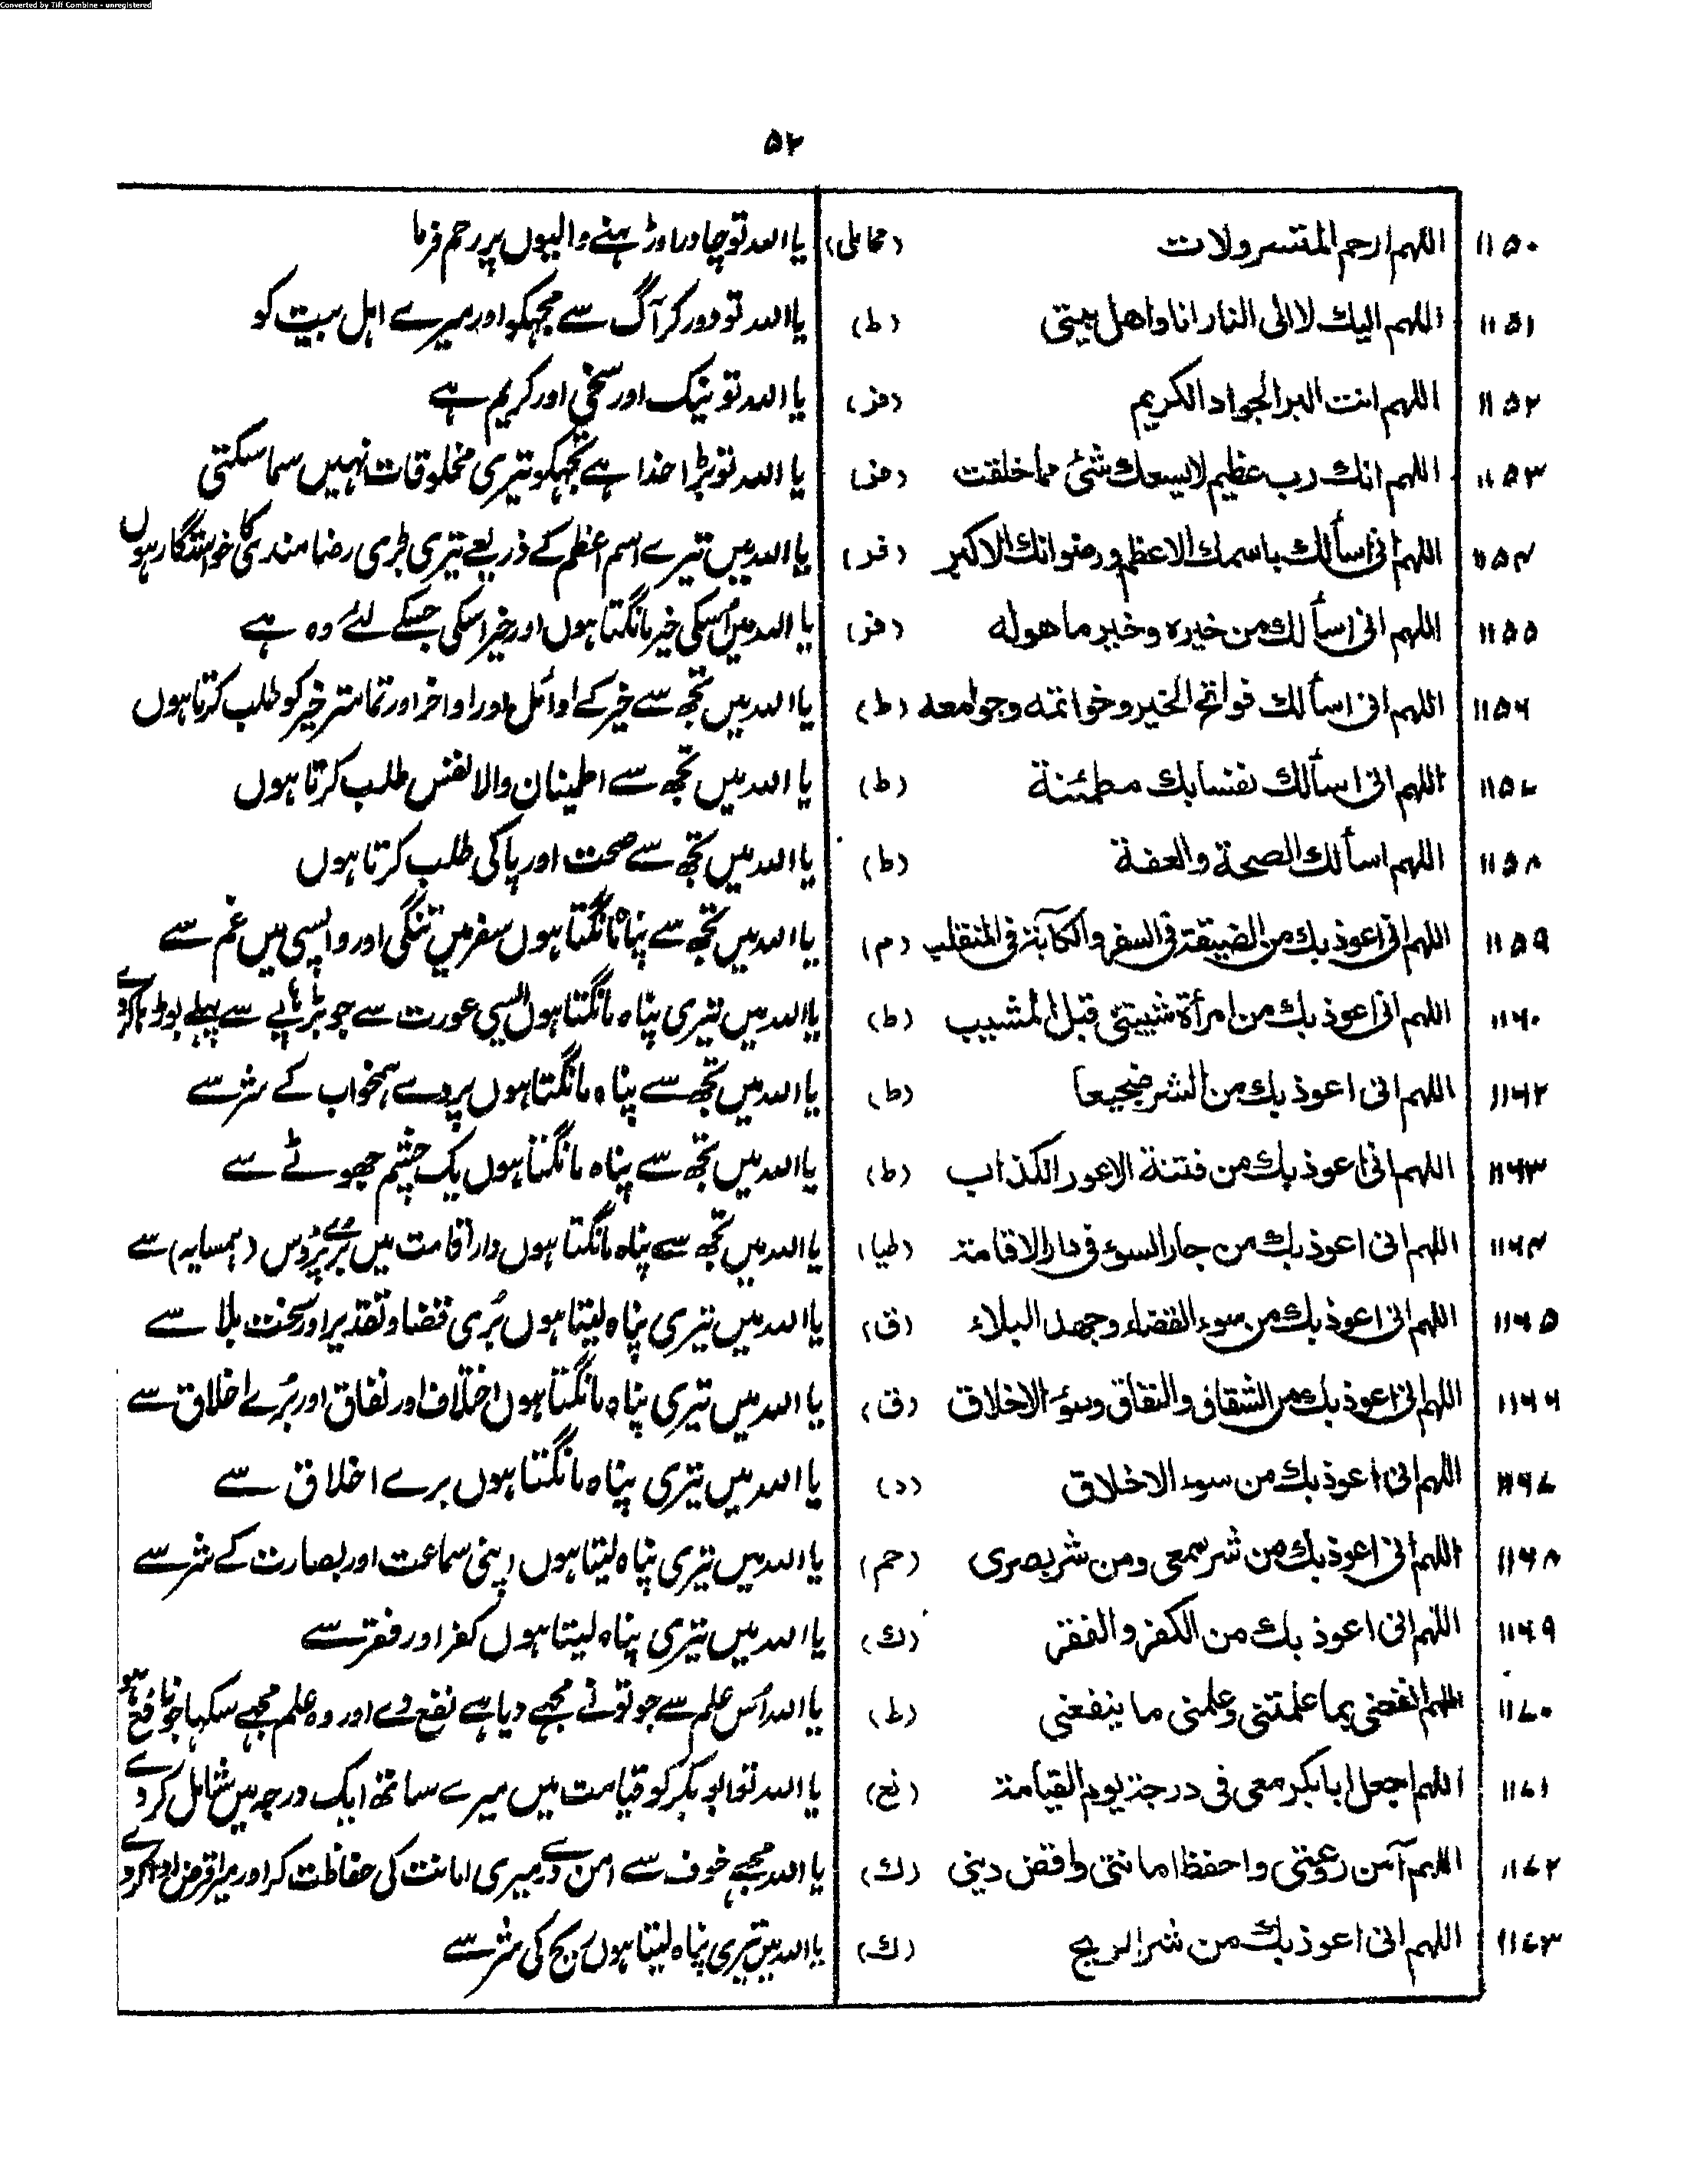 Converted by Tiff Combine - unregistered
۵۲
۱۱۵۰ اللہم ارحم المتسرولات (محاملی) یا اللہ تو چادر اوڑہنے والیوں پر رحم فرما
۱۱۵۱ اللہم الیك لا الی النار انا واهل بیتی (ط) یا اللہ تو دور کر آگ سے مجہکو اور میرے اہل بیت کو
۱۱۵۲ اللہم انت البر الجواد الكریم (فر) یا اللہ تو نیک اور سخی اور کریم ہے
۱۱۵۳ اللہم انك رب عظیم لا یسعك شئ مما خلقت (فر) یا اللہ تو بڑا خدا ہے تجہکو تیری مخلوقات نہیں سما سکتی
۱۱۵۴ اللہم انی اسألك باسمك الاعظم ورضوانك الاكبر (فر) یا اللہ میں تیرے اسم اعظم کے ذریعے تیری بڑی رضا مندی کا خواستگار ہوں
۱۱۵۵ اللہم انی اسألك من خیره وخیر ما هوله (فر) یا اللہ میں اسکی خیر مانگتا ہوں اور خیر اسکی جسکے لئے وہ ہے
۱۱۵۶ اللہم انی اسألك فواتح الخیر وخواتمه وجوامعه (ط) یا اللہ میں تجھ سے خیر کے اوائل اور اواخر اور تمامتر خیر کو طلب کرتا ہوں
۱۱۵۷ اللہم انی اسألك نفسا بك مطمئنة (ط) یا اللہ میں تجھ سے اطمینان والا نفس طلب کرتا ہوں
۱۱۵۸ اللہم اسألك الصحة والعفة (ط) یا اللہ میں تجھ سے صحت اور پاکی طلب کرتا ہوں
۱۱۵۹ اللہم انی اعوذ بك من الضیقة فی السفر والكآبة فی المنقلب (م) یا اللہ میں تجھ سے پناہ مانگتا ہوں سفر میں تنگی اور واپسی میں غم سے
۱۱۶۰ اللہم انی اعوذ بك من امرأة شیبتنی قبل المشیب (ط) یا اللہ میں تیری پناہ مانگتا ہوں ایسی عورت سے جو بڑہاپے سے پہلے بوڑہا کردے
۱۱۶۲ اللہم انی اعوذ بك من الشر ضجیعا (ط) یا اللہ میں تجھ سے پناہ مانگتا ہوں برے ہمخواب کے شر سے
۱۱۶۳ اللہم انی اعوذ بك من فتنة الاعور الكذاب (ط) یا اللہ میں تجھ سے پناہ مانگتا ہوں یک چشم جھوٹے سے
۱۱۶۴ اللہم انی اعوذ بك من جار السوء فی دار الاقامة (طیا) یا اللہ میں تجھ سے پناہ مانگتا ہوں دار اقامت میں بُرے پڑوس (ہمسایہ) سے
۱۱۶۵ اللہم انی اعوذ بك من سوء القضاء وجهد البلاء (ق) یا اللہ میں تیری پناہ لیتا ہوں بُری قضا و تقدیر اور سخت بلا سے
۱۱۶۶ اللہم انی اعوذ بك من الشقاق والنفاق وسوء الاخلاق (ق) یا اللہ میں تیری پناہ مانگتا ہوں اختلاف اور نفاق اور بُرے اخلاق سے
۱۱۶۷ اللہم انی اعوذ بك من سوء الاخلاق (د) یا اللہ میں تیری پناہ مانگتا ہوں برے اخلاق سے
۱۱۶۸ اللہم انی اعوذ بك من شر سمعی ومن شر بصری (حم) یا اللہ میں تیری پناہ لیتا ہوں اپنی سماعت اور بصارت کے شر سے
۱۱۶۹ اللہم انی اعوذ بك من الكفر والفقر (ك) یا اللہ میں تیری پناہ لیتا ہوں کفر اور فقر سے
۱۱۷۰ اللہم انفعنی بما علمتنی وعلمنی ما ینفعنی (ط) یا اللہ اُس علم سے جو تونے مجہے دیا ہے نفع دے اور وہ علم مجہے سکہا جو نافع ہو
۱۱۷۱ اللہم اجعل ابابكر معی فی درجة یوم القیامة (نع) یا اللہ تو ابو بکر کو قیامت میں میرے ساتھ ایک درجہ میں شامل کردے
۱۱۷۲ اللہم آمن روعتی واحفظ امانتی واقض دینی (ك) یا اللہ مجہے خوف سے امن دے میری امانت کی حفاظت کر اور میرا قرض ادا کردے
۱۱۷۳ اللہم انی اعوذ بك من شر الریح (ك) یا اللہ میں تیری پناہ لیتا ہوں ریح کی شر سے